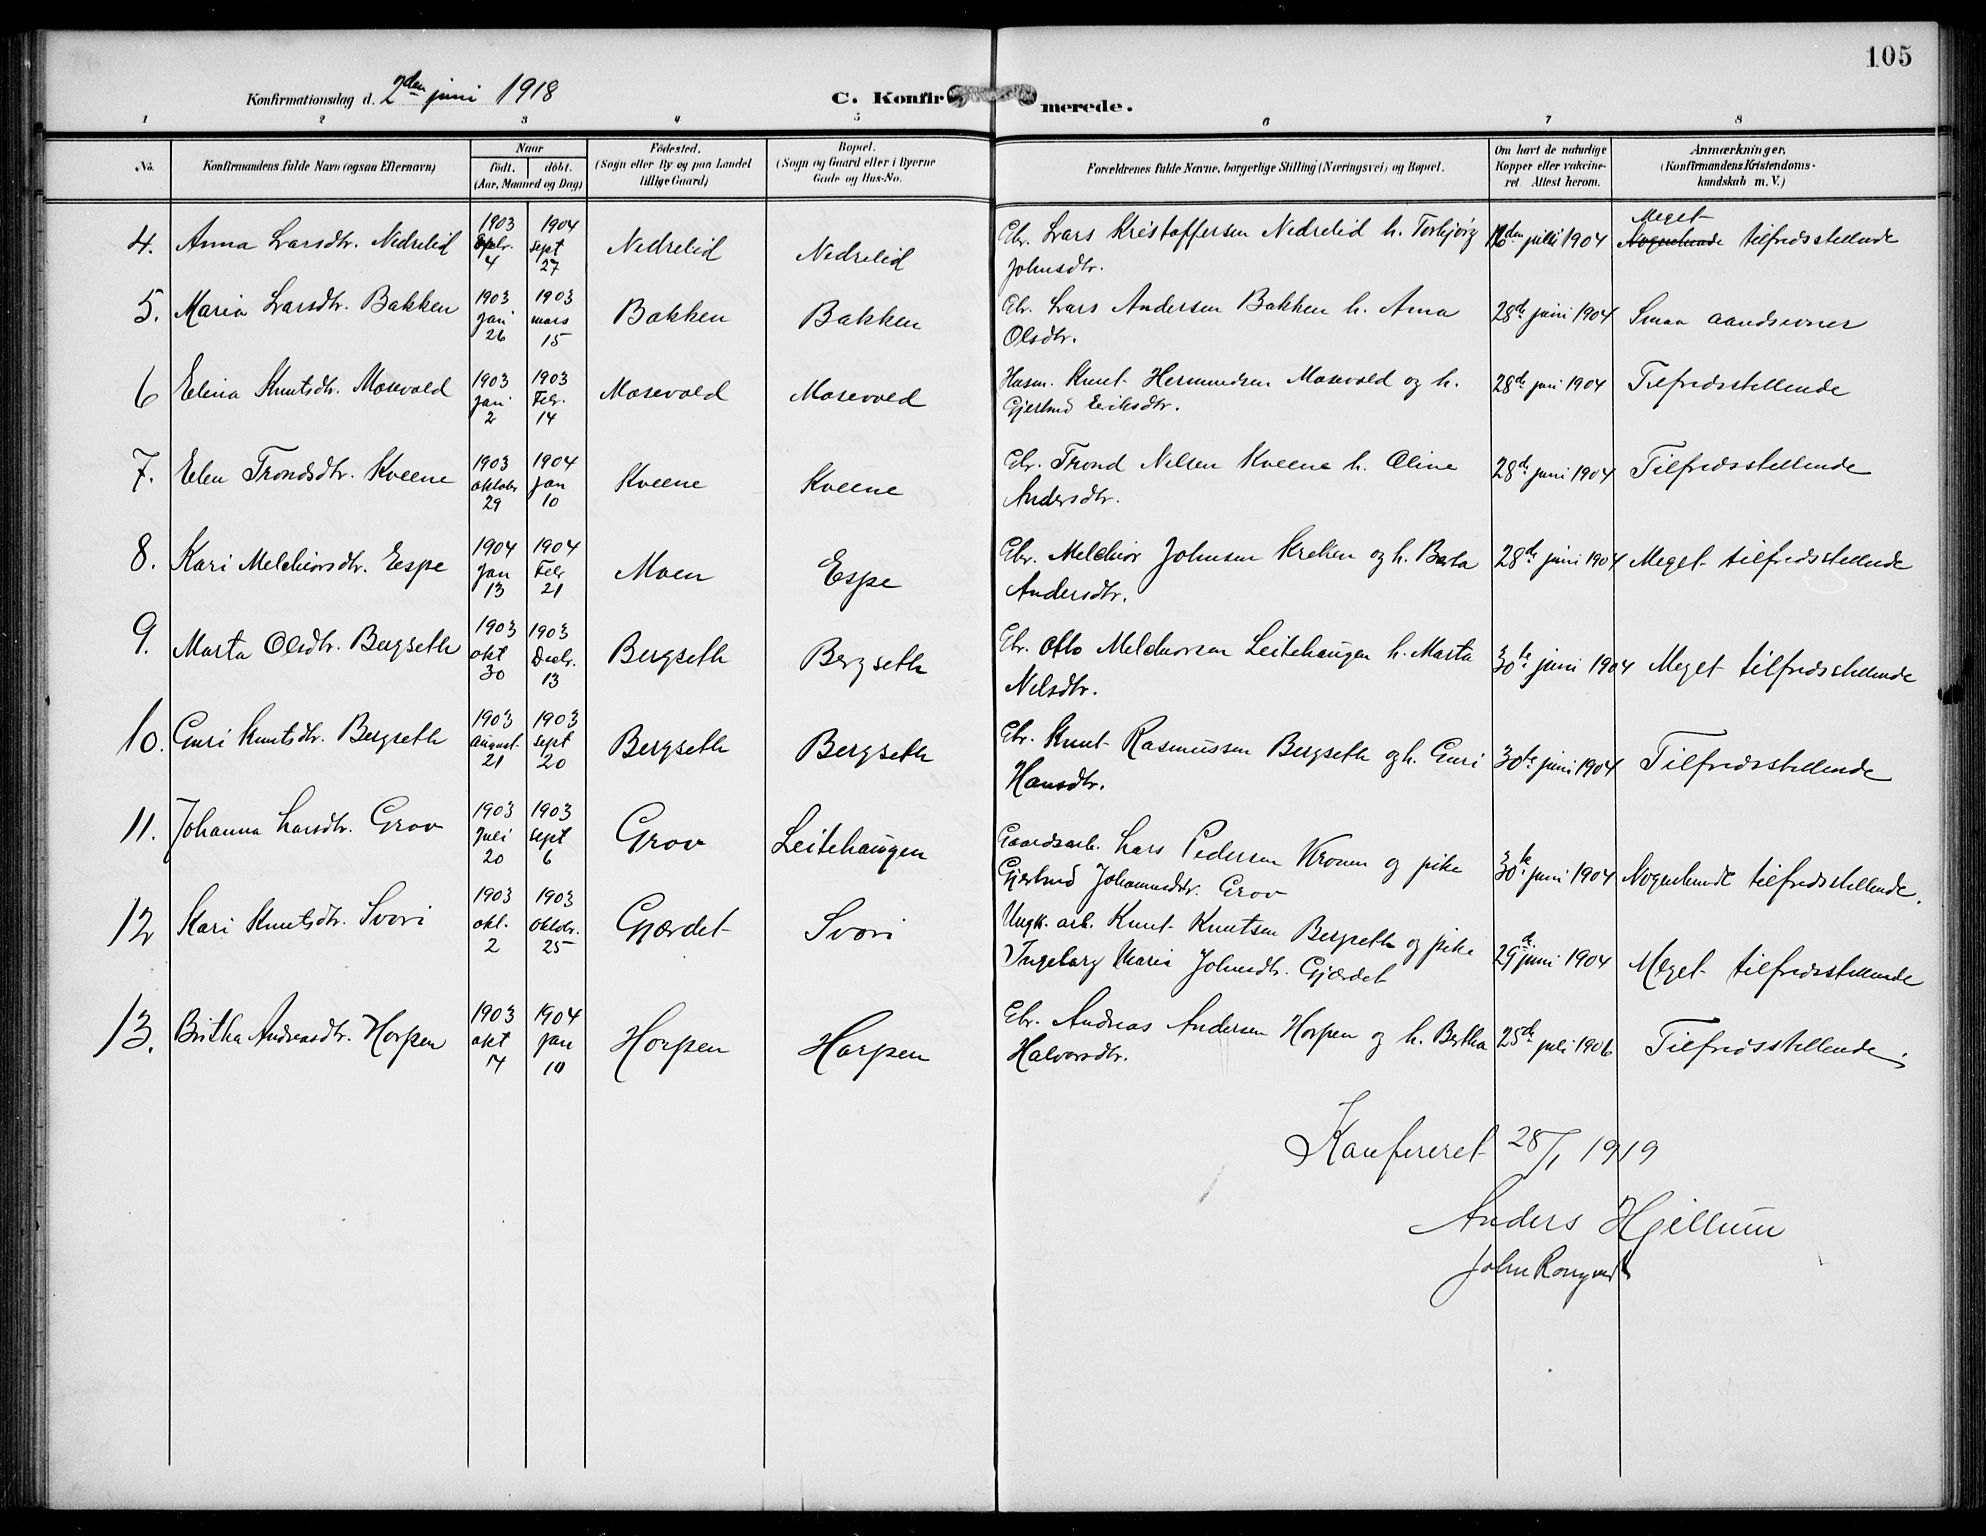 105
Konfirmationsdag d. 2den juni 1918
C. Konfirmerede.
1 2 3 4 5 6 7 8
No.
Konfirmandens fulde Navn (ogsaa Efternavn)
Naar
født. døbt.
(Aar, Maaned og Dag)
Fødested.
(Sogn eller By og paa Landet
tillige Gaard)
Bopæl.
(Sogn og Gaard eller i Byerne
Gade og Hus-No.
Forældrenes fulde Navne, borgerlige Stilling (Næringsvei) og Bopæl.
Om havt de naturlige
Kopper eller vakcine-
ret. Attest herom.
Anmærkninger,
(Konfirmandens Kristendoms-
kundskab m. V.)
4. Anna Larsdtr. Nedrelid 1903 4 1904 sept 27 Nedrelid Nedrelid Gbr. Lars Kristoffersen Nedrelid h. Torbjørg
Johnsdtr. 16den juli 1904 Meget Nogenlunde tilfredsstillende
5. Maria Larsdtr. Bakken 1903 jan 26 1903 mars 15 Bakken Bakken Gbr. Lars Andersen Bakken h. Anna
Olsdtr. 28de juni 1904 Smaa aandsevner
6 Elina Knutsdtr. Mosevold 1903 jan 2 1903 Febr. 14 Mosevold Mosevold Husm. Knut Hermundsen Mosevold og h.
Gjertrud Eriksdtr. 28de juni 1904 Tilfredsstillende
7. Elen Trondsdtr. Kveene 1903 oktobr 29 1904 jan 10 Kveene Kveene Gbr. Trond Nilsen Kveene h. Oline
Andersdtr. 28de juni 1904 Tilfredsstillende
8. Kari Melchiorsdtr. Espe 1904 jan 13 1904 Febr 21 Moen Espe Gbr. Melchior Johnsen Kreken og h. Berta
Andersdtr. 28de juni 1904 Meget tilfredsstillende
9. Marta Olsdtr. Bergseth 1903 okt 30 1903 Decbr. 13 Bergseth Bergseth Gbr. Otto Melchiorsen Leitehaugen h. Marta
Nelsdtr. 30te juni 1904 Meget tilfredsstillende
10. Guri Knutsdtr. Bergseth 1903 august 21 1903 sept 20 Bergseth Bergseth Gbr. Knut Rasmussen Bergseth og h. Guri
Hansdtr. 30te juni 1904 Tilfredsstillende
11. Johanna Larsdtr. Grov 1903 juli 20 1903 sept 6 Grov Leitehaugen Gaardsarb. Lars Pedersen Kronen og pike
Gjertrud Johannesdtr. Grov 30te juni 1904 Nogenlunde tilfredsstillende.
12 Kari Knutsdtr. Svori 1903 okt. 2 1903 oktobr. 25 Gjærdet Svori Ungk. arb. Knut Knutsen Bergseth og pike
Ingeborg Maria Johnsdtr. Gjærdet 29de juni 1904 Meget tilfredsstillende
13. Britha Andreasdtr. Horpen 1903 okt 7 1904 jan 10 Horpen Horpen Gbr. Andreas Andersen Horpen og h. Bertha
Halvorsdtr. 25de juli 1906 Tilfredsstillende.
Konfereret 28/1 1919
Anders Hjellum
John